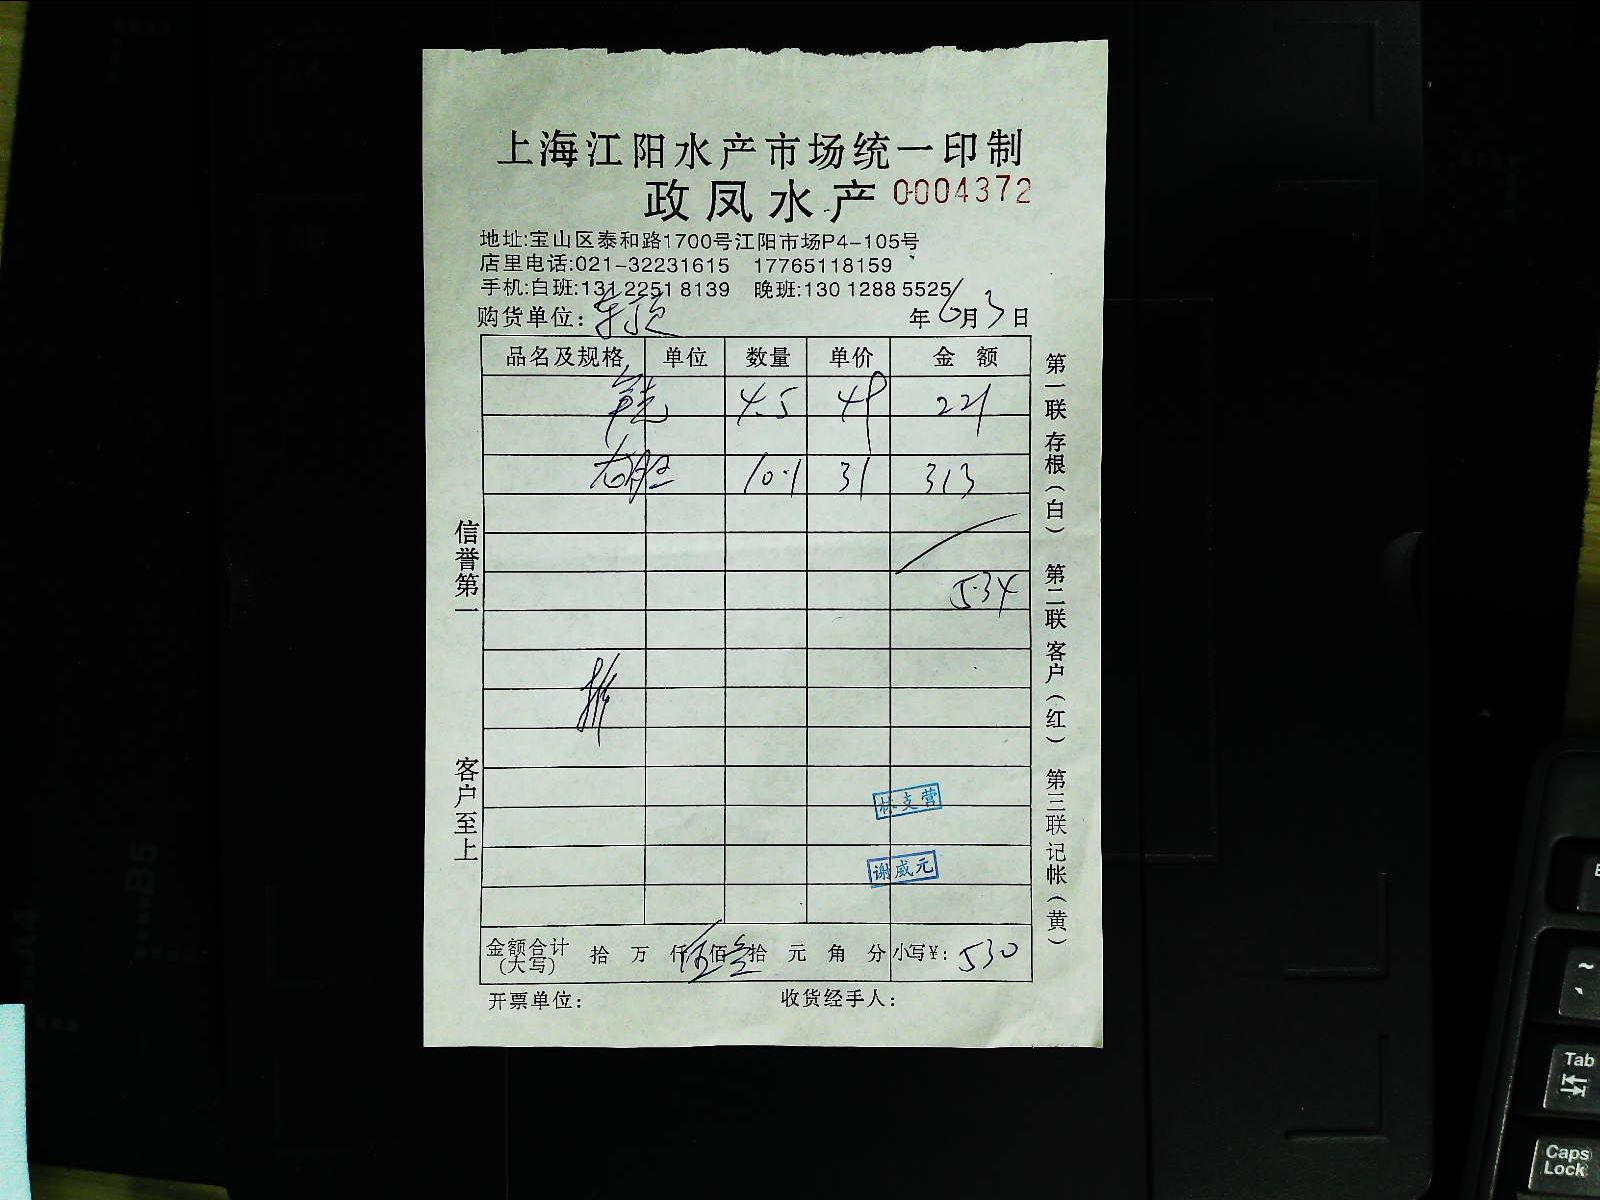 上海江阳水产市场统一印制
政凤水产 0004372
地址:宝山区泰和路1700号江阳市场P4-105号
店里电话:021-32231615 17765118159
手机:白班:131 2251 8139 晚班:130 1288 5525
购货单位: 年6月3日
品名及规格 单位 数量 单价 金额
4.5 49 221
10.1 31 313
534
林支营
谢咸元
金额合计(大写) 拾 万 仟伍佰叁拾 元 角 分 小写¥: 530
开票单位: 收货经手人:
信誉第一 客户至上
第一联 存根(白) 第二联 客户(红) 第三联 记帐(黄)
B5
A4
~
Tab
Caps Lock